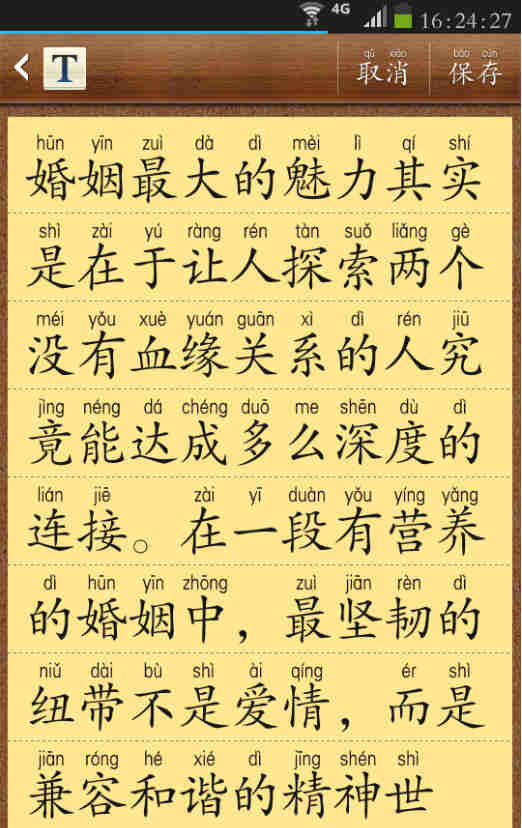 4G 16:24:27
T qǔ xiāo bǎo cún
取消 保存
hūn yīn zuì dà dì mèi lì qí shí
婚姻最大的魅力其实
shì zài yú ràng rén tàn suǒ liǎng gè
是在于让人探索两个
méi yǒu xuè yuán guān xì dì rén jiū
没有血缘关系的人究
jìng néng dá chéng duō me shēn dù dì
竟能达成多么深度的
lián jiē zài yī duàn yǒu yíng yǎng
连接。在一段有营养
dì hūn yīn zhōng zuì jiān rèn dì
的婚姻中，最坚韧的
niǔ dài bù shì ài qíng ér shì
纽带不是爱情，而是
jiān róng hé xié dì jīng shén shì
兼容和谐的精神世